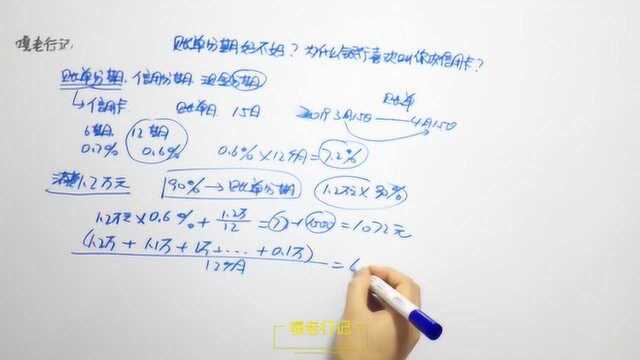 嘎老行记:
账单分期好不好? 为什么银行喜欢叫你办信用卡?
账单分期. 信用分期. 现金分期
↳信用卡 账单日 15日 2019 3月15日 —— 4月15日
账单
6期 12期
0.7% 0.6% 0.6%×12个月=7.2%
消费1.2万元 90%→账单分期 1.2万元×90%
1.2万元×0.6%+1.2万/12=72+1000=1072元
(1.2万+1.1万+1万+...+0.1万)
12个月 =
嘎老行记